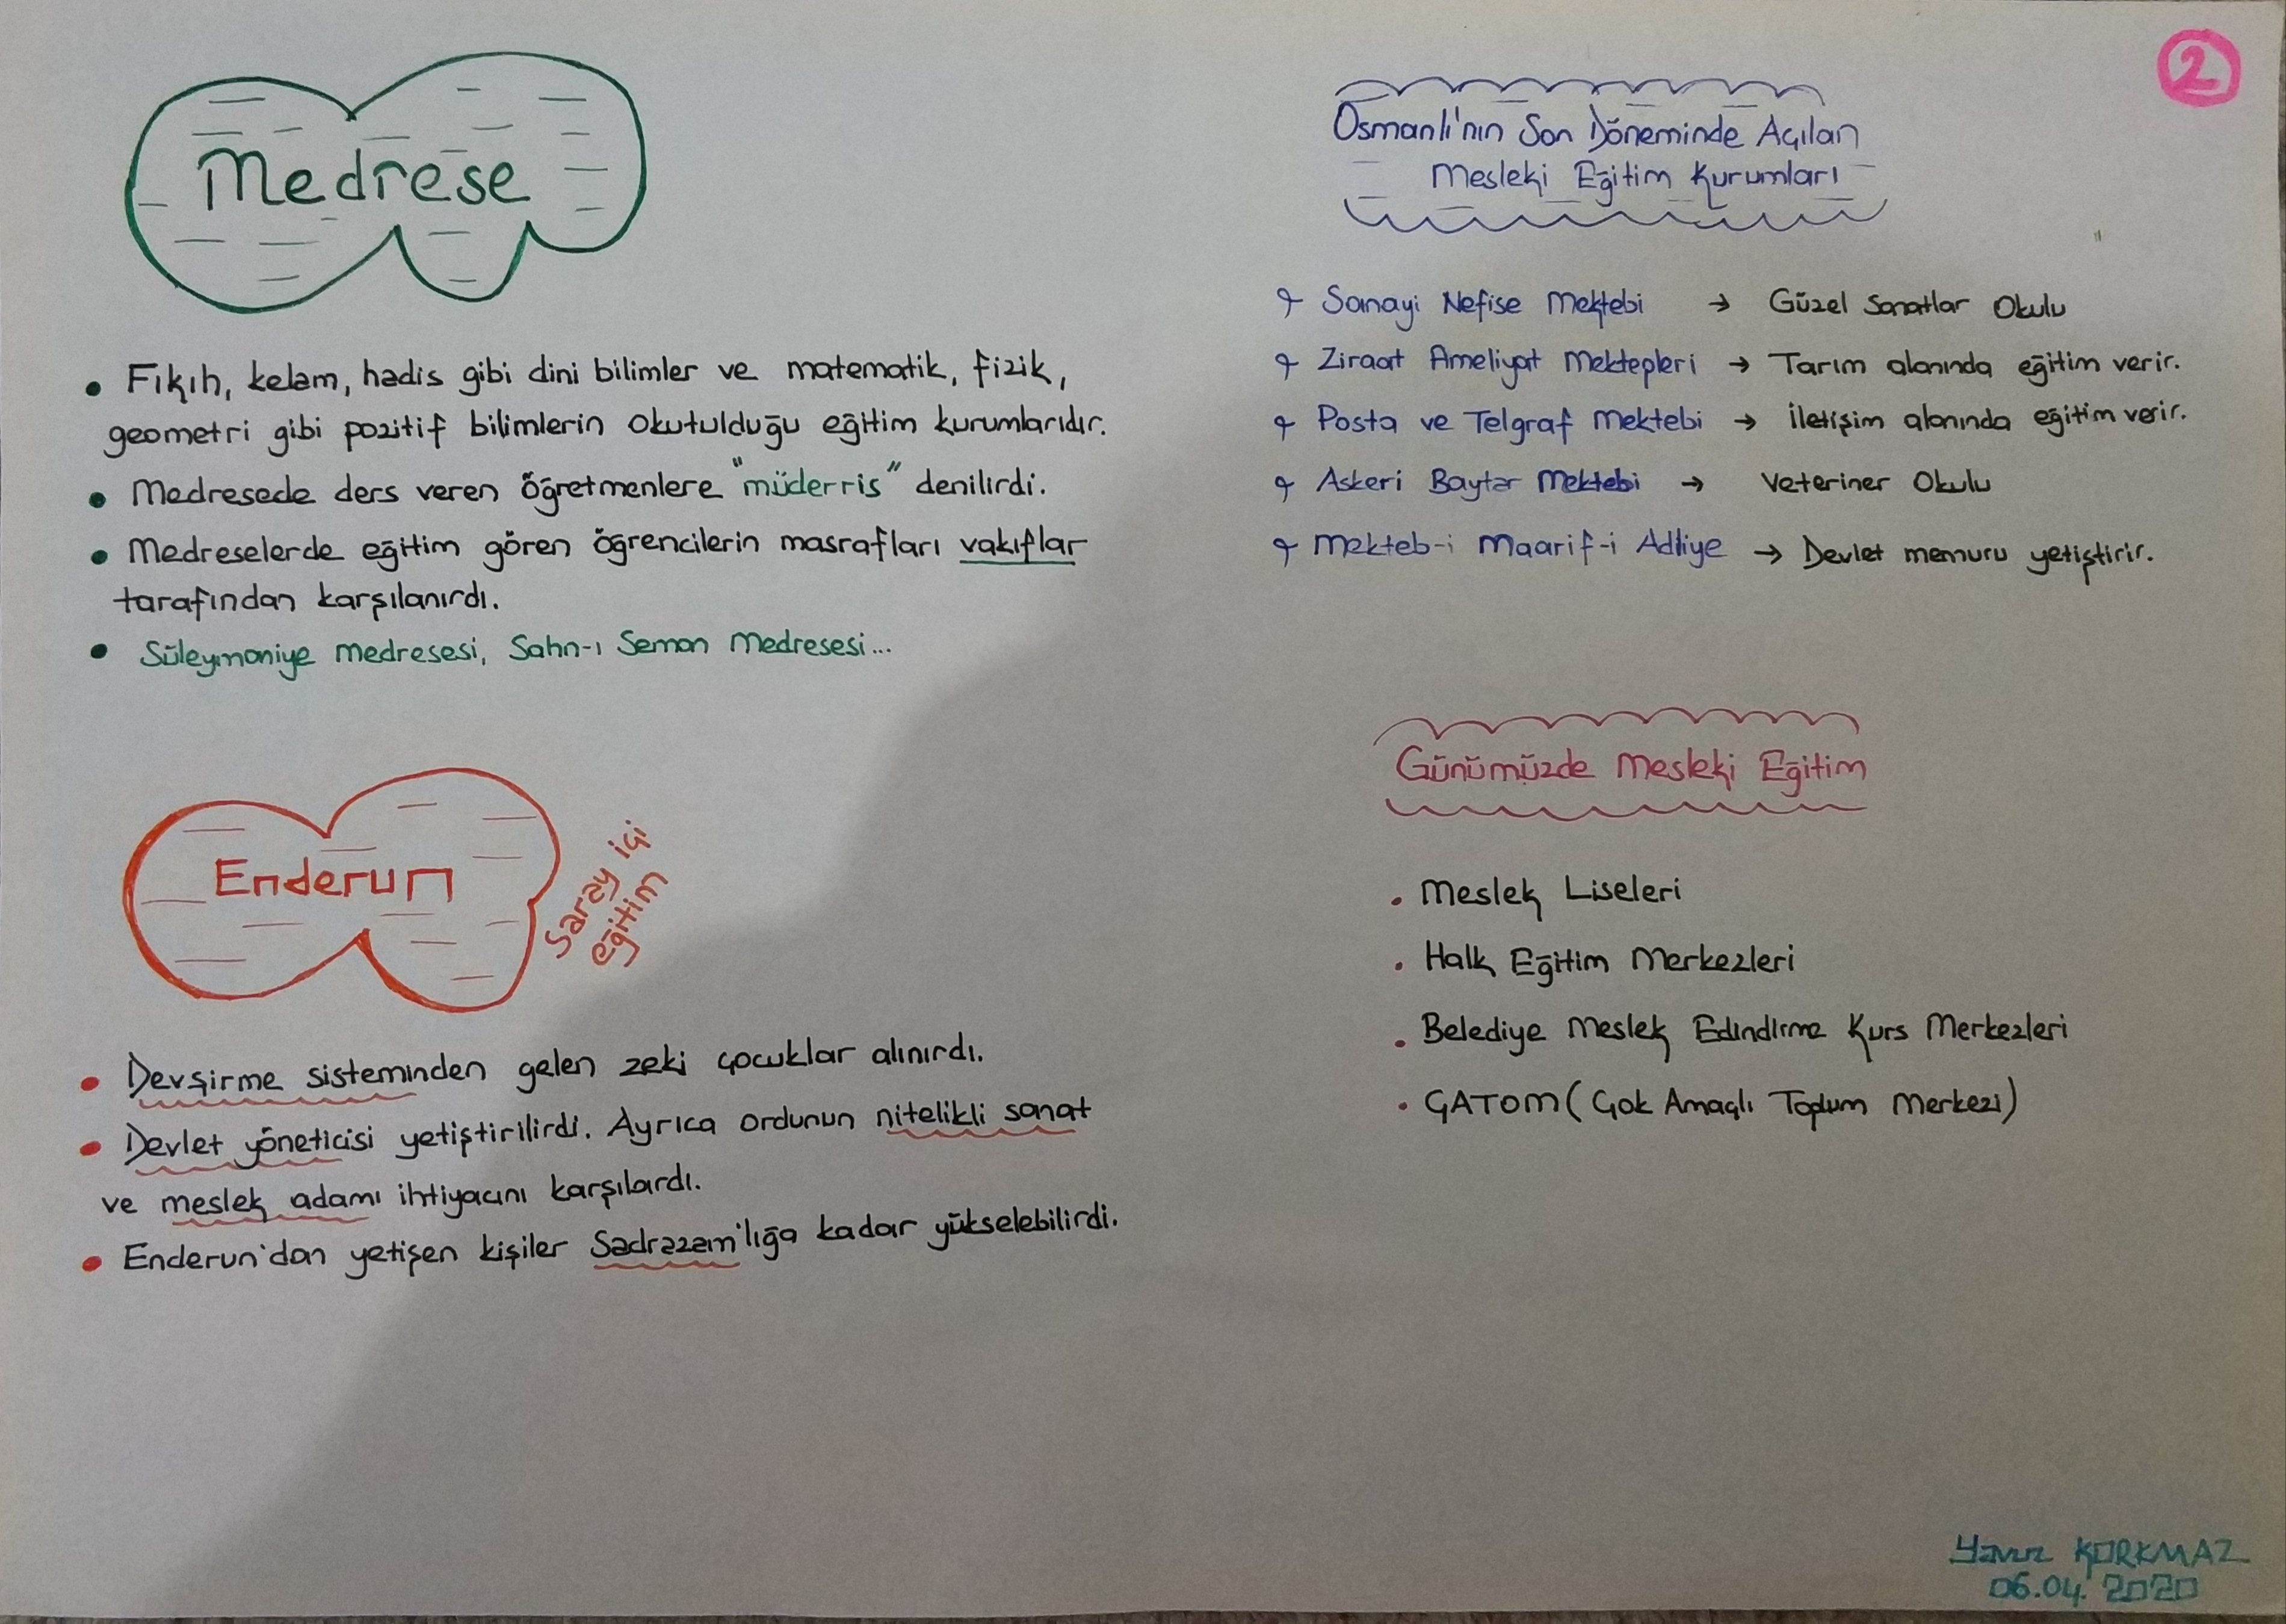 2
Medrese
• Fıkıh, kelam, hadis gibi dini bilimler ve matematik, fizik,
geometri gibi pozitif bilimlerin okutulduğu eğitim kurumlarıdır.
• Medresede ders veren öğretmenlere "müderris" denilirdi.
• Medreselerde eğitim gören öğrencilerin masrafları vakıflar
tarafından karşılanırdı.
• Süleymaniye medresesi, Sahn-ı Seman Medresesi...
Enderun
Saray içi
eğitim
• Devşirme sisteminden gelen zeki çocuklar alınırdı.
• Devlet yöneticisi yetiştirilirdi. Ayrıca ordunun nitelikli sanat
ve meslek adamı ihtiyacını karşılardı.
• Enderun'dan yetişen kişiler Sadrazam'lığa kadar yükselebilirdi.
Osmanlı'nın Son Döneminde Açılan
Mesleki Eğitim Kurumları
Sanayi Nefise Mektebi → Güzel Sanatlar Okulu
Ziraat Ameliyat Mektepleri → Tarım alanında eğitim verir.
Posta ve Telgraf Mektebi → İletişim alanında eğitim verir.
Askeri Baytar Mektebi → Veteriner Okulu
Mekteb-i Maarif-i Adliye → Devlet memuru yetiştirir.
Günümüzde Mesleki Eğitim
• Meslek Liseleri
• Halk Eğitim Merkezleri
• Belediye Meslek Edindirme Kurs Merkezleri
• ÇATOM (Çok Amaçlı Toplum Merkezi)
Yavuz KORKMAZ
06.04.2020